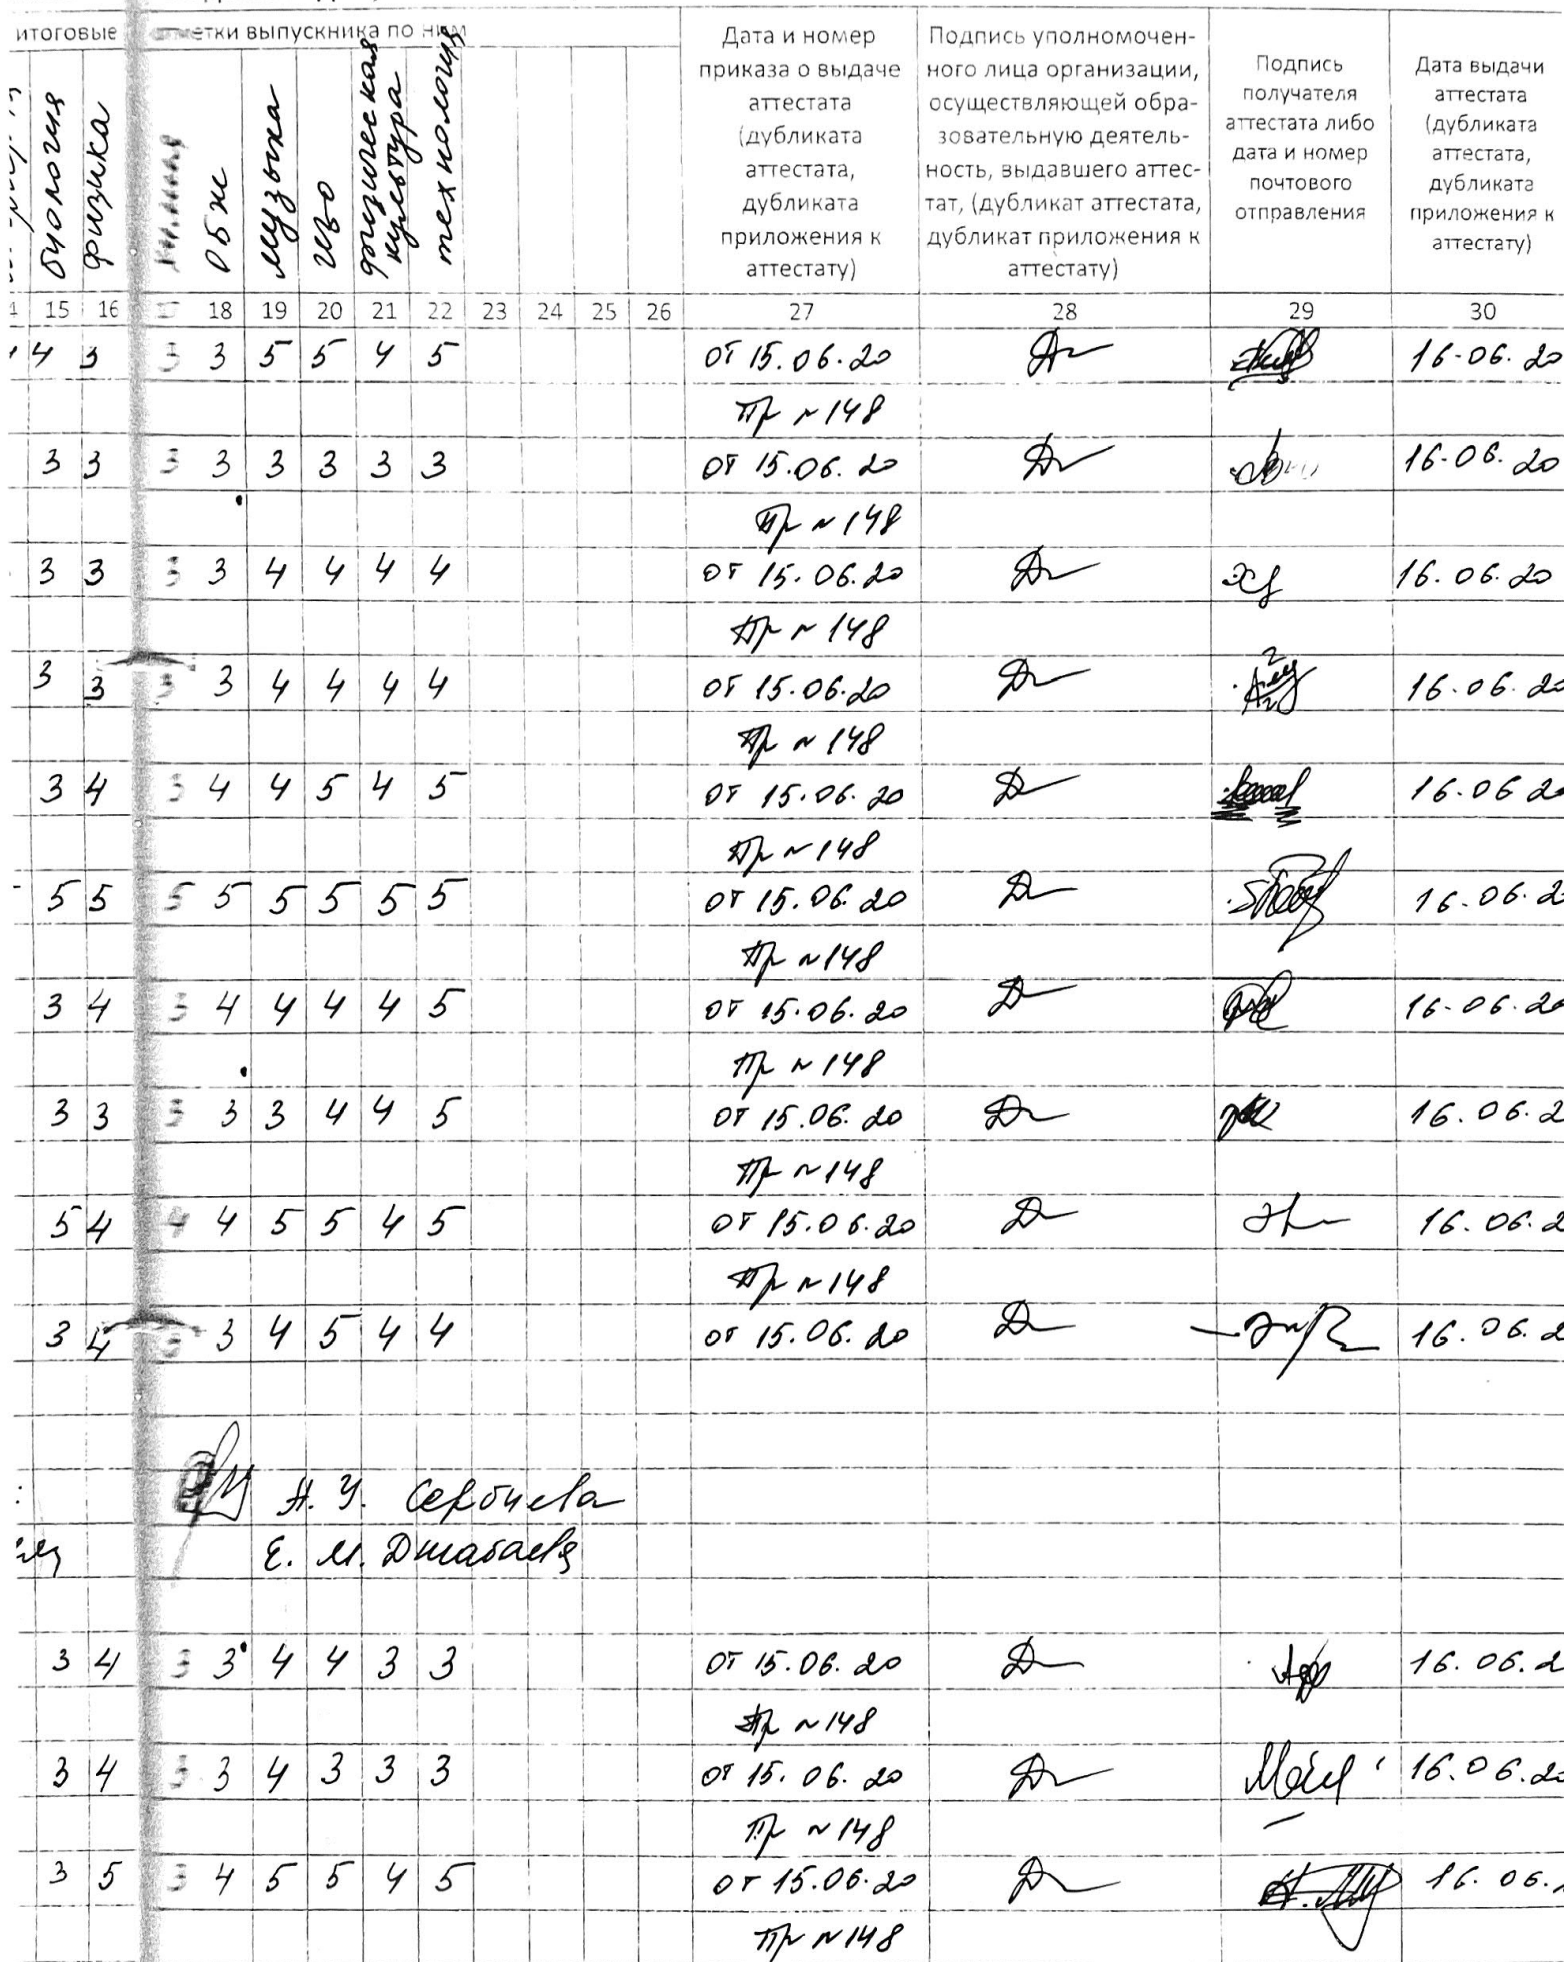 итоговые отметки выпускника по ним
биология
физика
ОБЖ
музыка
ИЗО
физическая культура
технология
Дата и номер приказа о выдаче аттестата (дубликата аттестата, дубликата приложения к аттестату)
Подпись уполномочен-
ного лица организации, осуществляющей обра-
зовательную деятель-
ность, выдавшего аттес-
тат, (дубликат аттестата, дубликат приложения к аттестату)
Подпись получателя аттестата либо дата и номер почтового отправления
Дата выдачи аттестата (дубликата аттестата, дубликата приложения к аттестату)
15 16 17 18 19 20 21 22 23 24 25 26 27 28 29 30
4 3 3 3 5 5 4 5 от 15.06.20 16.06.20
Пр №148
3 3 3 3 3 3 3 3 от 15.06.20 16.06.20
Пр №148
3 3 3 3 4 4 4 4 от 15.06.20 16.06.20
Пр №148
3 3 3 3 4 4 4 4 от 15.06.20 16.06.20
Пр №148
3 4 3 4 4 5 4 5 от 15.06.20 16.06 20
Пр №148
5 5 5 5 5 5 5 5 от 15.06.20 16.06.2
Пр №148
3 4 3 4 4 4 4 5 от 15.06.20 16.06.20
Пр №148
3 3 3 3 3 4 4 5 от 15.06.20 16.06.2
Пр №148
5 4 4 4 5 5 4 5 от 15.06.20 16.06.2
Пр №148
3 4 3 3 4 5 4 4 от 15.06.20 16.06.2
А. У. Сербиева
Е. М. Джабаева
3 4 3 3 4 4 3 3 от 15.06.20 16.06.2
Пр №148
3 4 3 3 4 3 3 3 от 15.06.20 16.06.20
Пр №148
3 5 3 4 5 5 4 5 от 15.06.20 16.06.
Пр №148